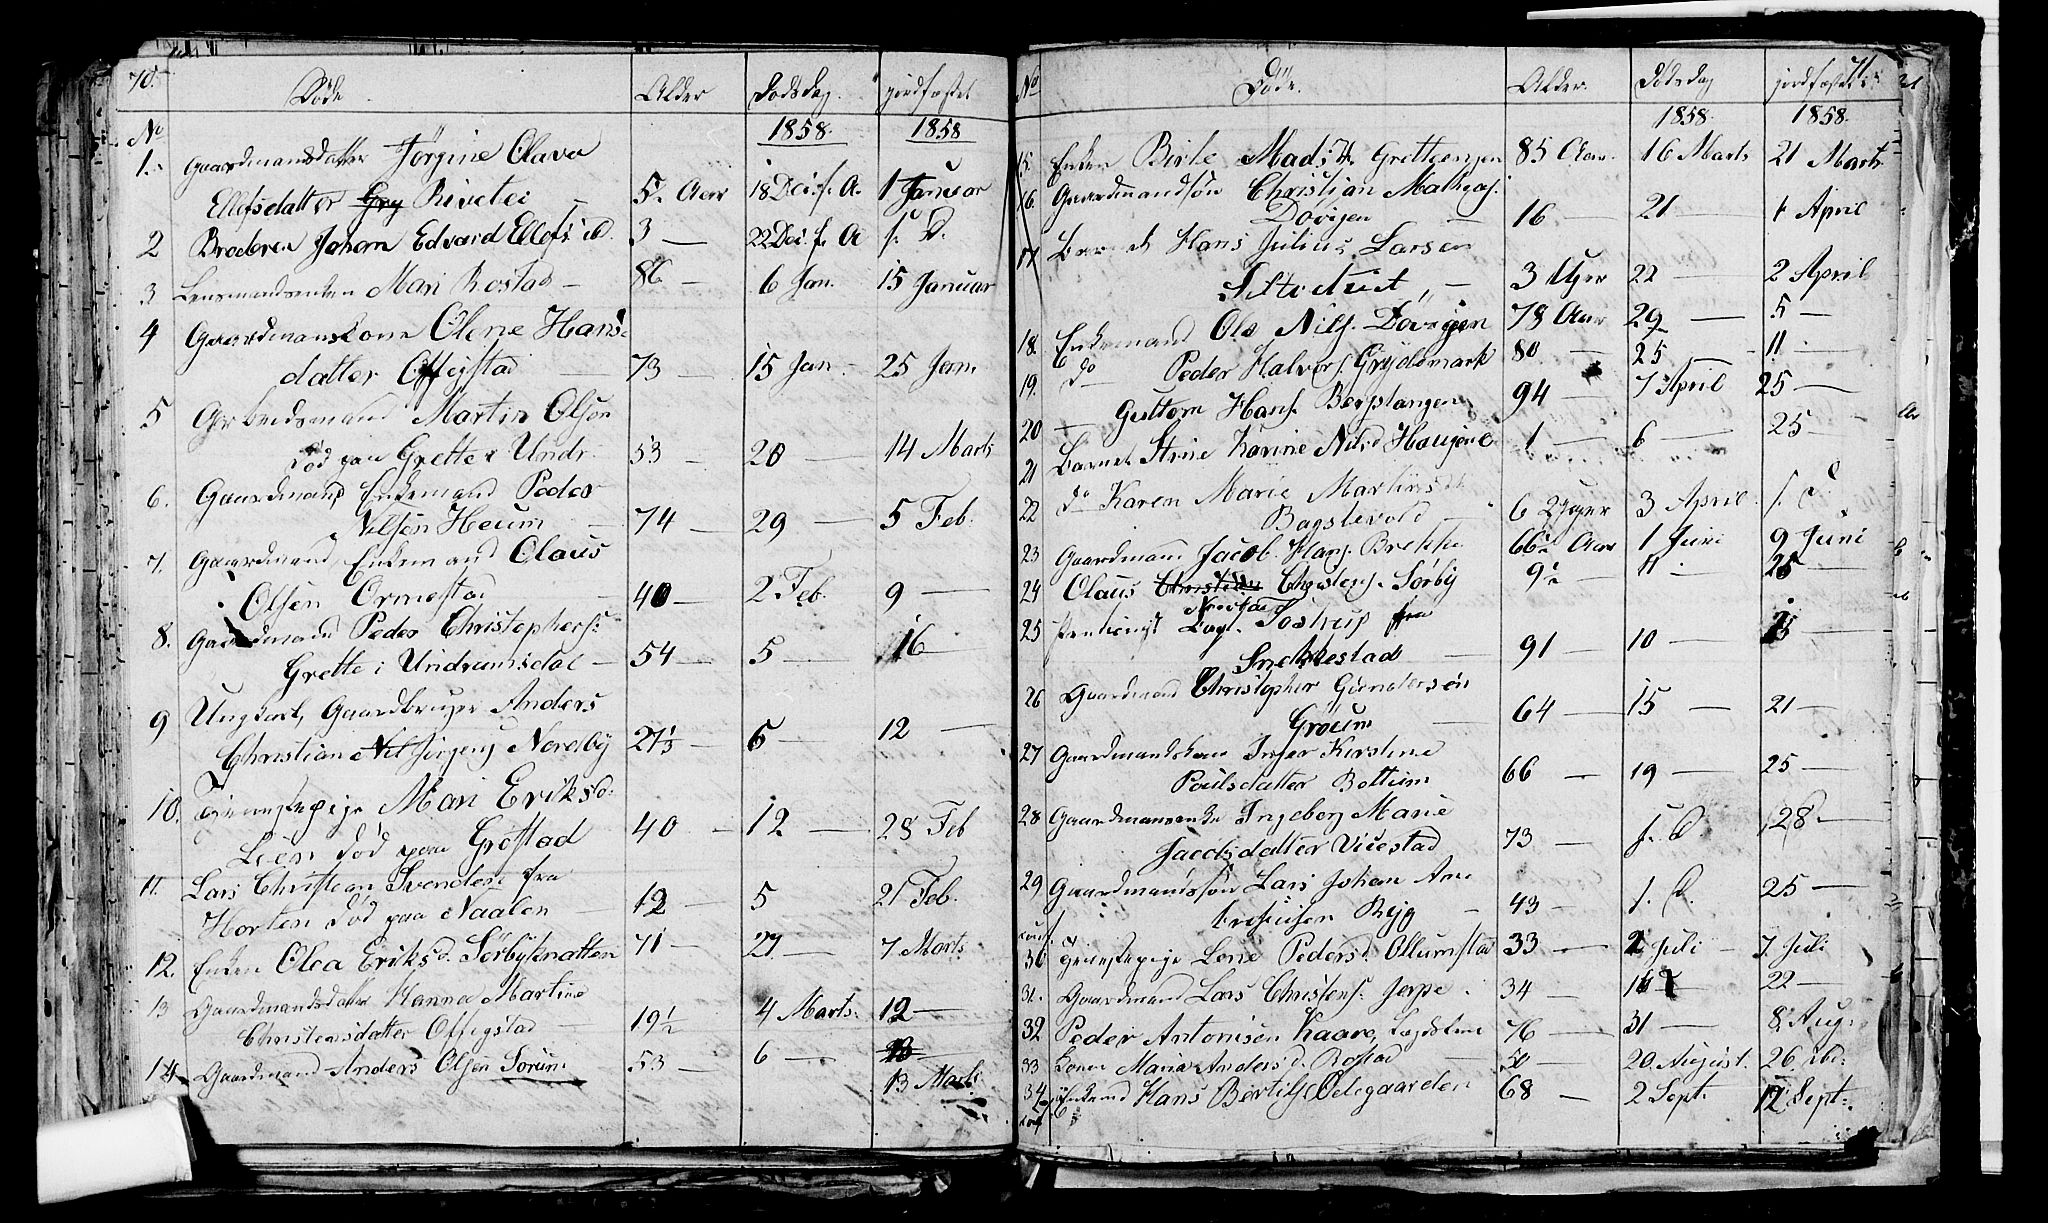 70.
Døde Alder Dødsdag jordfæstet
No 1858. 1858
1. Gaardmandsdatter Jörgine Olava
Ellefsdatter Gry Rivelei 5. Aar 18 Dec. f. A. 1 Januar
2 Broderen Johan Edvard Ellefs. ib. 3 — 22 Dec. f. A s. D.
3 Lensmandsenken Mari Rostad — 86 — 6 Jan. 15 Januar
4 Gaardmandskone Olene Hans-
datter Offigstad — 73 — 15 Jan. 25 Jan.
5 Martin Olsen
død paa Grette i Undr. 53 — 20 — 14 Marts
6. Gaardmand, Enkemand Peder
Nilsen Heum — 74 — 29 — 5 Feb.
7. Gaardmand, Enkemand Olaus
Olsen Ormestad — 40 — 2 Feb. 9 —
8. Gaardmand Peder Christophers.
Grette i Undrumsdal — 54 — 5 — 16
9 Ungkarl, Gaardbruger Anders
Christian Nil Jörgens. Nordby 27⅓ — 6 — 12 —
10. Tjenestepige Mari Eriksd.
Lien død paa Grostad 40 — 12 — 28 Feb
11. Lars Christian Svendsen fra
Horten død paa Naalen — 12 — 5 21 Feb.
12. Enken Olea Eriksd. Sörbyknatten 71 — 27 — 7 Marts
13 Gaardmandsdatter Hanna Martine
Christensdatter Offigstad — 19½ 4 Marts. 12 —
14 Gaardmand Anders Olsen Sorum 53 — 6 — 13 Marts
71
No Døde. Alder. Dødsdag jordfæstet
1858. 1858.
15. Enken Birte Madsd. Gretteengen 85 Aar. 16 Marts 21 Marts
16. Gaardmandsøn Christian Mathias.
Dovigen — 16 — 21 — 1 April
17 Barnet Hans Julius Larsen
— 3 Uger 22 — 2 April
18. Enkemand Ole Nils. Dovigen 78 Aar 29 — 5 —
19. do Peder Halvors. Gryddmark 80 — 25 — 11 —
20 — Guttorm Hans. Berplangen 94 — 7 April 25 —
21 Barnet Karine Nilsd Haugene 1 — 6 — 25 —
22 do Karen Marie Martinsd.
Bagstevold — 6 Uger 3 April s. D.
23 Gaardmand Jacob Hans. Brekke 66½ Aar 1 Juni 9 Juni
24 Olaus Christian Christens. Sörby 9½ — 11 — 25 —
25 Tostrup fra
Snekkestad — 91 — 10 —
26 Gaardmand Christopher Gundersen
Gröum — 64 — 15 — 21 —
27 Gaardmandskone Inger Kirstine
Poulsdatter Bettum 66 — 19 — 25 —
28 Gaardmandsenke Ingeborg Marie
Jacobsdatter Viersstad 73 — s. D 28 —
29 Gaardmandssøn Lars Johan Am-
brosiusen Bigg — 43 — s. D. 25 —
30 Tjenestepige Lene Pedersd. Ollumstad 33 — 2 Juli — 7. Juli
31. Gaardmand Lars Christens. Jerpe. 34 — 22 —
32 Peder Antonisen Kaare, Lægdslem 76 — 31 — 8 Aug.
33 Konen Maria Andersd. Rostad — 50 — 20. August. 26. ibd.
34 Enkemd Hans Bertils. Ödegaarden 68 — 2 Sept. 12 Sept.